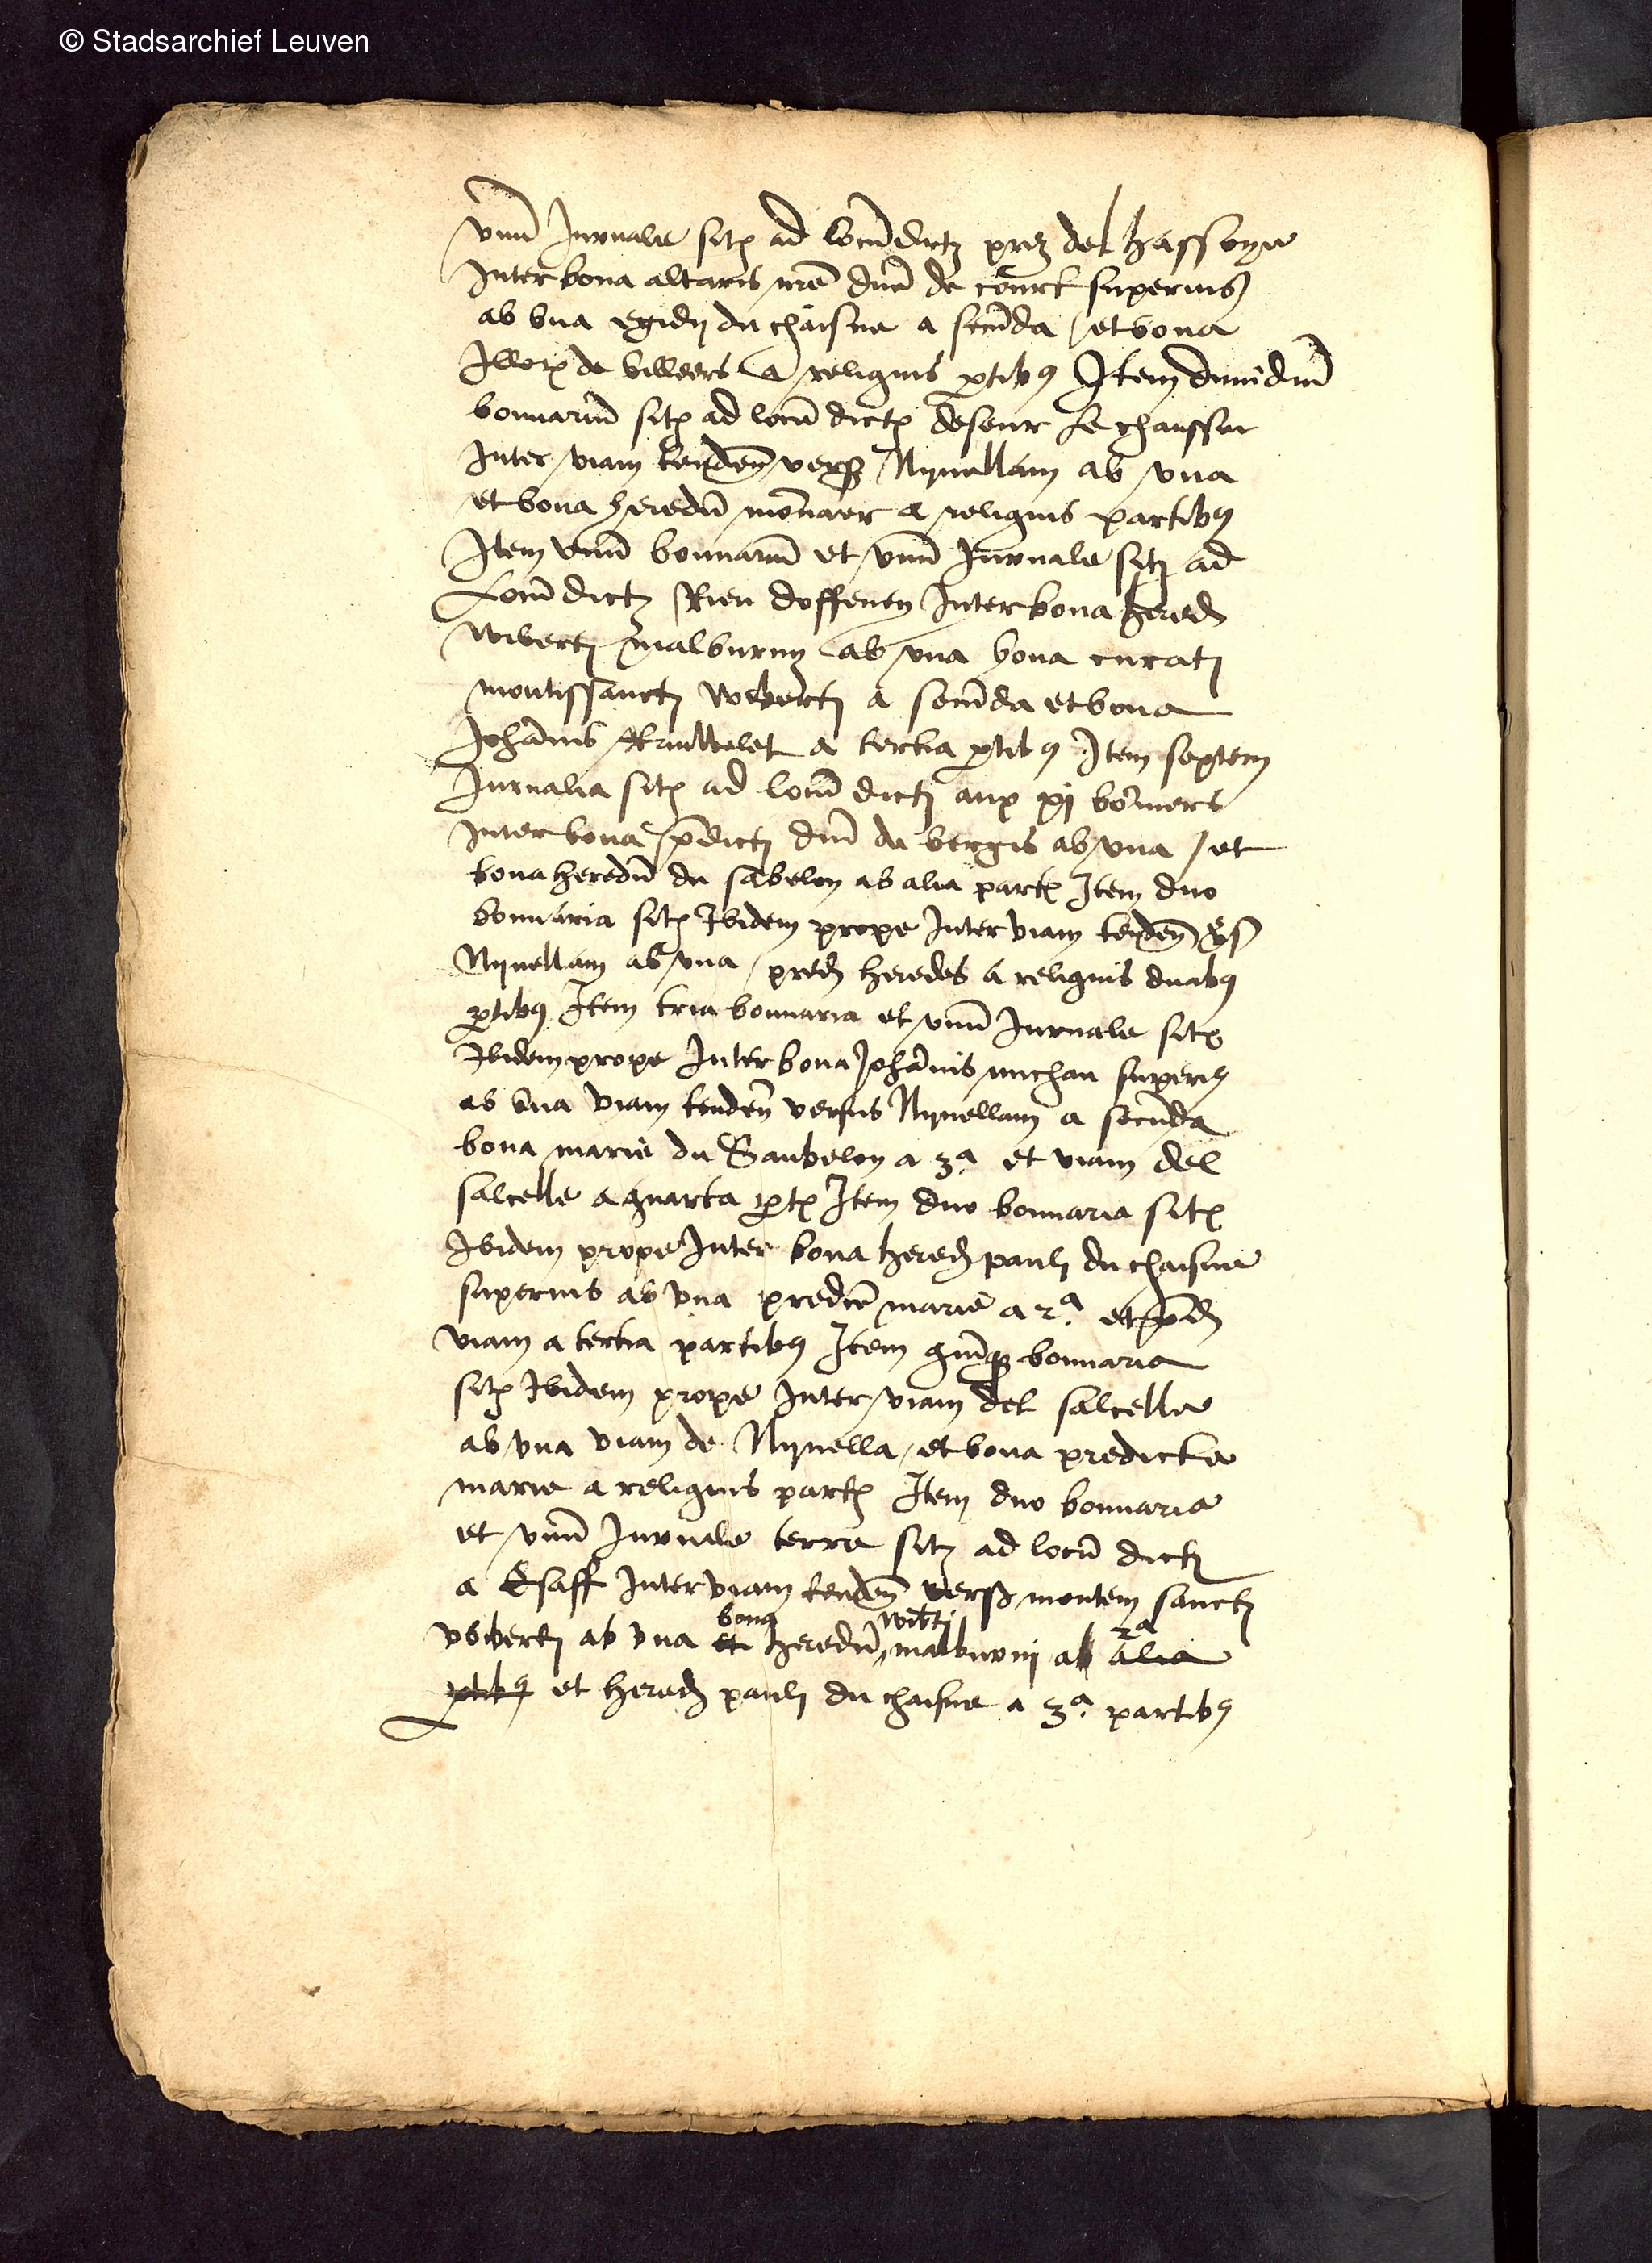 © Stadsarchief Leuven
vnu Jurnale sit ad locu dict prez del hassoye
Inter bona altaris nre dne de court superius
ab vna egidij du chaisne a secuda / et bona
Illor de villeers a reliquis ptibus Item dimidiu
bonnariu sit ad locu dict deseur le chaussie
Inter viam tenden vers Nyuellam ab vna
et bona heredu monaer a reliquis partibus
Item vnu bonnariu et vnu Jurnale sit ad
Locu dict Rieu doffeney Inter bona hered
Wiberti malburny ab vna bona curati
montissancti Wiberti a secuda et bona
Johanis a tertia ptibus Item septem
Jurnalia sit ad locu dict aux xj boniers
Inter bona pdicti dni de bergis ab vna / et
bona heredu du sabelon ab alia parte Item duo
bonnaria sit Ibidem prope Inter viam tenden vers
Nyuellam ab vna / pred heredes a reliquis duabus
ptibus Item tria bonnaria et vnu Jurnale sit
Ibidem prope Inter bona Johanis michau superius
ab vna viam tenden versus Nyuellam a secunda
bona marie du Saubelon a 3a et viam del
salcelle a quarta pte Item duo bonnaria sit
Ibidem prope Inter bona hered pauli du chaisne
superius ab vna predce marie a 2a et pd
viam a tertia partibus Item quiq bonnaria
sit Ibidem prope Inter viam del salcelle
ab vna viam de Nyuella / et bona predicte
marie a reliquis part Item duo bonnaria
et vnu Jurnale terre sit ad locu dict
a Esaff Inter viam tenden vers montem sancti
bona Wibti 2a
vbberti ab vna et heredu malburnij ab alia
ptibus et hered pauli du chaisne a 3a partibus